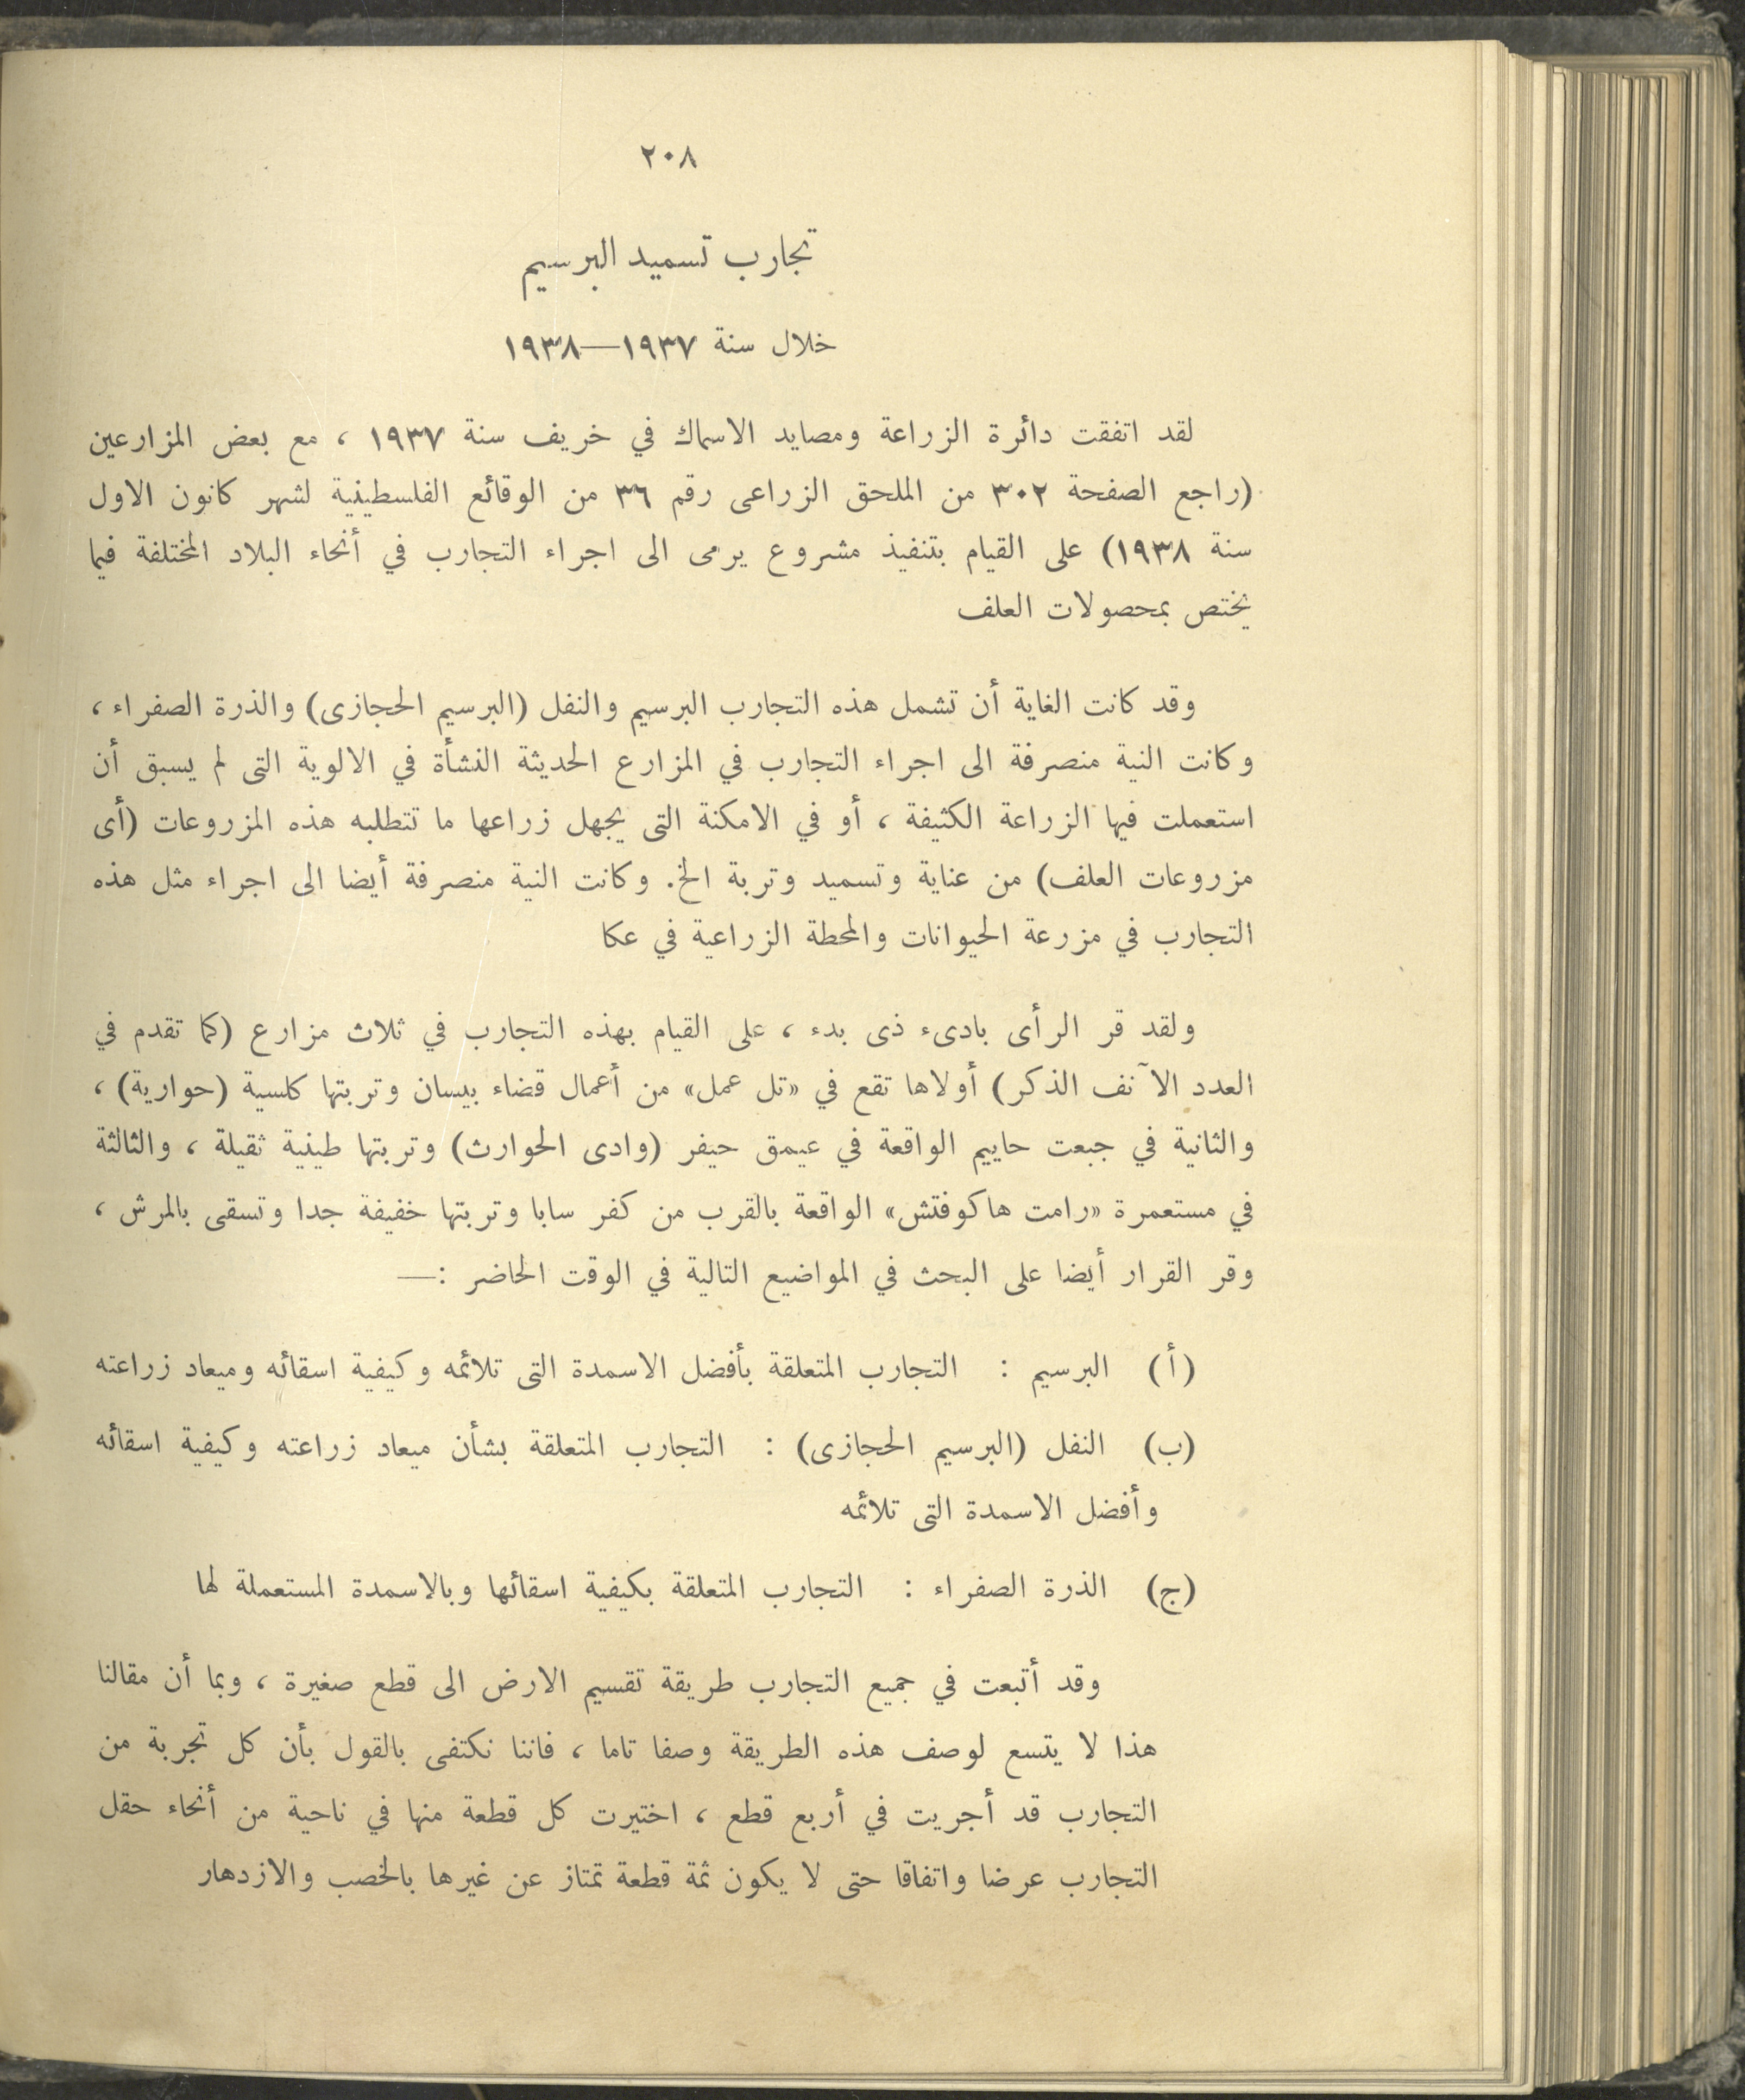 ٢٠٨
تجارب تسميد البرسيم
خلال سنة ١٩٣٧—١٩٣٨
لقد اتفقت دائرة الزراعة ومصايد الاسماك في خريف سنة ١٩٣٧ ، مع بعض المزارعين
(راجع الصفحة ٣٠٢ من الملحق الزراعى رقم ٣٦ من الوقائع الفلسطينية لشهر كانون الاول
سنة ١٩٣٨) على القيام بتنفيذ مشروع يرمى الى اجراء التجارب في أنحاء البلاد المختلفة فيما
يختص بمحصولات العلف
وقد كانت الغاية أن تشمل هذه التجارب البرسيم والنفل (البرسيم الحجازى) والذرة الصفراء ،
وكانت النية منصرفة الى اجراء التجارب في المزارع الحديثة النشأة في الالوية التى لم يسبق أن
استعملت فيها الزراعة الكثيفة ، أو في الامكنة التى يجهل زراعها ما تتطلبه هذه المزروعات (أى
مزروعات العلف) من عناية وتسميد وتربة الخ. وكانت النية منصرفة أيضا الى اجراء مثل هذه
التجارب في مزرعة الحيوانات والمحطة الزراعية في عكا
ولقد قر الرأى بادىء ذى بدء ، على القيام بهذه التجارب في ثلاث مزارع (كما تقدم في
العدد الآنف الذكر) أولاها تقع في «تل عمل» من أعمال قضاء بيسان وتربتها كلسية (حوارية) ،
والثانية في جبعت حاييم الواقعة في عيمق حيفر (وادى الحوارث) وتربتها طينية ثقيلة ، والثالثة
في مستعمرة «رامت هاكوفتش» الواقعة بالقرب من كفر سابا وتربتها خفيفة جدا وتسقى بالمرش ،
وقر القرار أيضا على البحث في المواضيع التالية في الوقت الحاضر :—
(أ) البرسيم : التجارب المتعلقة بأفضل الاسمدة التى تلائمه وكيفية اسقائه وميعاد زراعته
(ب) النفل (البرسيم الحجازى) : التجارب المتعلقة بشأن ميعاد زراعته وكيفية اسقائه
وأفضل الاسمدة التى تلائمه
(ج) الذرة الصفراء : التجارب المتعلقة بكيفية اسقائها وبالاسمدة المستعملة لها
وقد أتبعت في جميع التجارب طريقة تقسيم الارض الى قطع صغيرة ، وبما أن مقالنا
هذا لا يتسع لوصف هذه الطريقة وصفا تاما ، فاننا نكتفى بالقول بأن كل تجربة من
التجارب قد أجريت في أربع قطع ، اختيرت كل قطعة منها في ناحية من أنحاء حقل
التجارب عرضا واتفاقا حتى لا يكون ثمة قطعة تمتاز عن غيرها بالخصب والازدهار